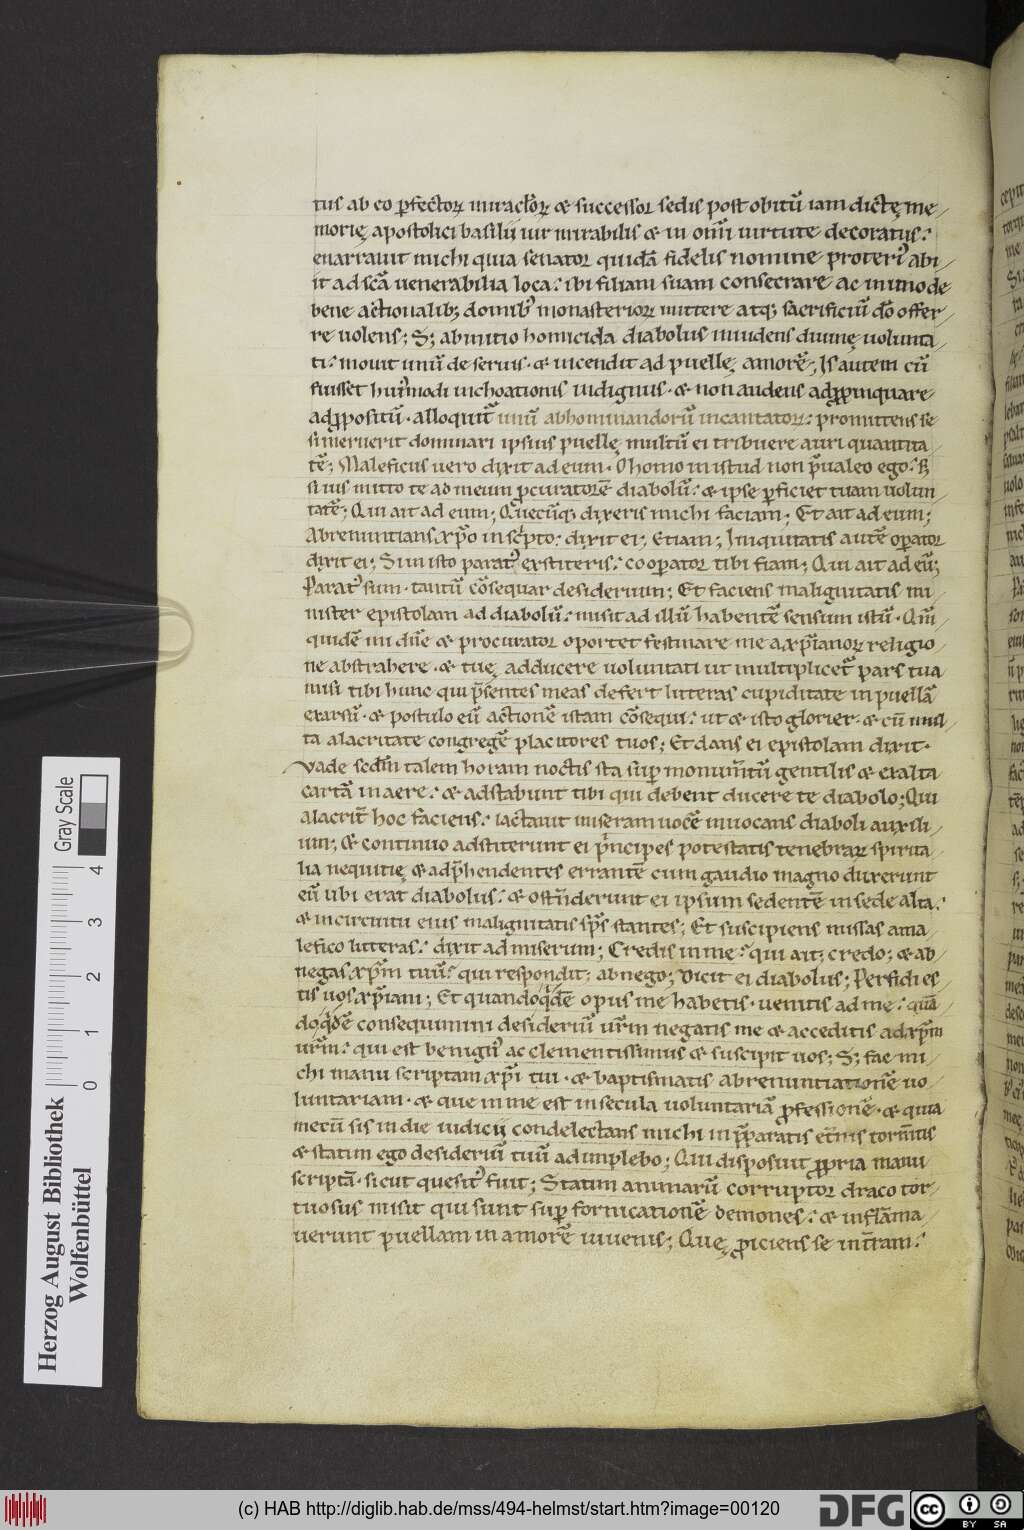 tus ab eo ꝑfectoꝝ miraclo̅ꝝ & successor sedis post obitu̅ iam dictę me/
morię apostolici basilii uir mirabilis & in om̅i uirtute decoratus:
enarrauit michi quia senator quida̅ fidelis nomine proteri᾿ abi/
it ad sc̅a uenerabilia loca: ibi filiam suam consecrare ac in uno de
bene actionalib; domib᾿ monasterioꝝ mittere atq; sacrificiu̅ do̅ offer/
re uolens; S; ab initio homicida diabolus inuidens diuinę uolunta/
ti: mouit unu̅ de seruis · & incendit ad puellę amore̅; Is autem cu̅
fuisset hui᾿modi inchoationis indignus · & non audens adꝓpinquare
adꝓpositu̅ · alloquit᾿ unu̅ abhominandoru̅ incantatoꝝ: promittens se
si meruerit dominari ipsius puellę multu̅ ei tribuere auri quantita/
te̅; Maleficus uero dixit ad eum · O homo in istud non p̅ualeo ego: S;
si uis mitto te ad meum ꝓcuratore̅ diabolu̅: & ipse ꝑficiet tuam uolun/
tate̅; Qui ait ad eum; Quecu̅q; dixeris michi faciam; Et ait ad eum;
Abrenuntians xp̅o in sc̅pto: dixit ei; Etiam; Iniquitatis aute̅ oꝑator
dixit ei; Si in isto parat᾿ extiteris: cooꝑator tibi fiam; Qui ait ad eu̅;
Parat᾿ sum · tantu̅ co̅sequar desiderium; Et faciens malignitatis mi/
nister epistolam ad diabolu̅: misit ad illu̅ habente̅ sensum istu̅ · Qm̅
quide̅ mi dn̅e & procurator oportet festinare me a xp̅ianoꝝ religio/
ne abstrahere · & tuę adducere uoluntati ut multiplicet᾿ pars tua
misi tibi hunc qui p̅sentes meas defert litteras cupiditate in puella̅
exarsu̅ · & postulo eu̅ actione̅ istam co̅sequi: ut & isto glorier · & cu̅ mul/
ta alacritate congrege̅ placitores tuos; Et dans ei epistolam dixit·
Vade sed̅m talem horam noctis sta suꝑ monum̅tu̅ gentilis & exalta
carta̅ in aere: & adstabunt tibi qui debent ducere te diabolo; Qui
alacrit᾿ hoc faciens: iactauit miseram uoce̅ inuocans diaboli auxili/
um; & continuo adstiterunt ei p̅ncipes potestatis tenebraꝝ spirita/
lia nequitię & adp̅hendentes errante̅ cum gaudio magno duxerunt
eu̅ ubi erat diabolus: & oste̅derunt ei ipsum sedente̅ in sede alta:
& in circuitu eius malignitatis sp̅s stantes; Et suscipiens missas a ma/
lefico litteras: dixit ad miserum; Credis in me: qui ait; credo; & ab/
negas xp̅m tuu̅: qui respondit; abnego; Dicit ei diabolus; Perfidi es/
tis uos xp̅iani; Et quandoq̅de̅ opus me habetis · uenitis ad me: qua̅/
doq̅de̅ consequimini desideriu̅ ur̅m negatis me & acceditis ad xp̅m
ur̅m: qui est benign᾿ ac clementissimus & suscipit uos; S; fac mi/
chi manu scriptam xp̅i tui · & baptismatis abrenuntiatione̅ uo/
luntariam · & que in me est in secula uoluntaria̅ ꝓfessione̅ · & quia
mecu̅ sis in die iudicii condelectans michi in p̅paratis et̅nis torm̅tis
& statim ego desideriu̅ tuu̅ adimplebo; Qui disposuit ꝓpria manu
scripta̅ · sicut quesit᾿ fuit; Statim animaru̅ corruptor draco tor/
tuosus misit qui sunt suꝑ fornicatione̅ demones: & infla̅ma/
uerunt puellam in amore̅ iuuenis; Quę ꝓiciens se in t̅ram:
Herzog August Bibliothek
Wolfenbüttel
Gray Scale
0 1 2 3 4
(c) HAB http://diglib.hab.de/mss/494-helmst/start.htm?image=00120
DFG
cc BY SA